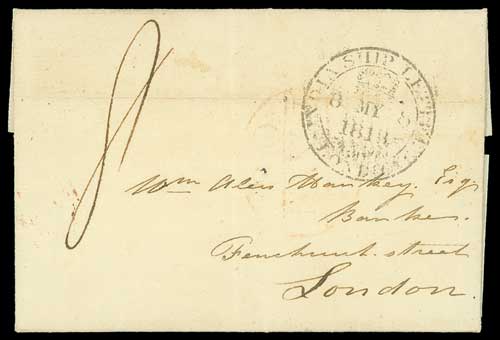 8
INDIA SHIP LETTER
8 MY 8
1818
LONDON
Wm Alexr Hankey, Esqr
Banker.
Fenchurch street
London.